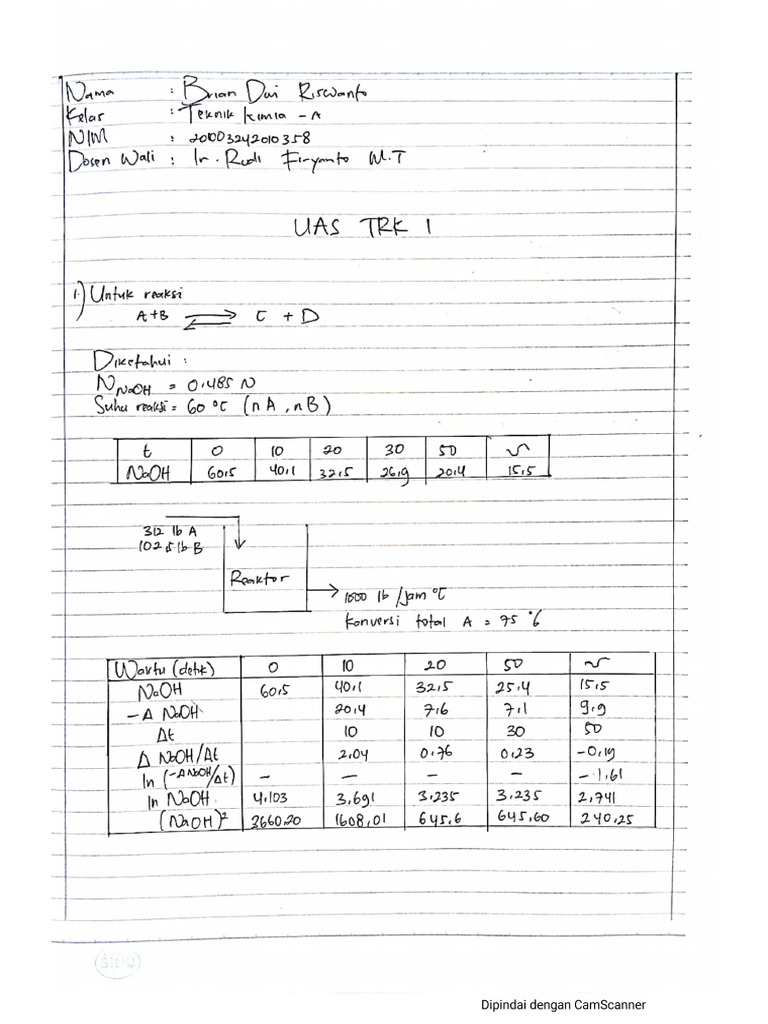 Nama : Brian Dwi Riswanto
Kelas : Teknik Kimia - A
NIM : 201003242010358
Dosen Wali : Ir. Rudi Firyanto M.T
UAS TRK 1
1.) Untuk reaksi
A+B ⇌ C + D
Diketahui :
N NaOH = 0.485 N
Suhu reaksi = 60 °C (nA, nB)
t 0 10 20 30 50 ~
NaOH 60,5 40,1 32,5 26,9 20,4 15,5
312 lb A
102,5 lb B
Reaktor
1000 lb /jam °C
Konversi total A = 75 %
Waktu (detik) 0 10 20 50 ~
NaOH 60,5 40,1 32,5 25,4 15,5
- Δ NaOH 20,4 7,6 7,1 9,9
Δt 10 10 30 50
Δ NaOH/Δt 2,04 0,76 0,23 -0,19
ln (-Δ NaOH/Δt) - - - - -1,61
ln NaOH 4,103 3,691 3,235 3,235 2,741
(NaOH)² 3660,20 1608,01 645,6 645,60 240,25
SIDU
Dipindai dengan CamScanner